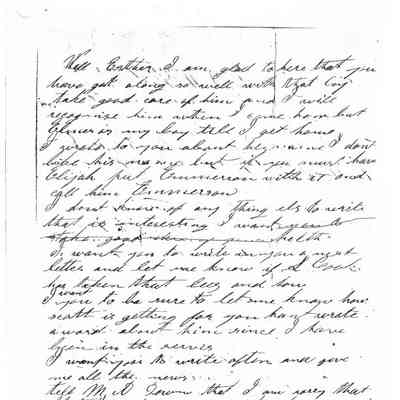 Well Esther I am glad to here that you
have got along so well with that boy
take good care of him and I will
recognise him when I come home but
Elmer is my boy tell I get home
I wrote to you about his name I dont
like his name but if you must have
Elijah put Emmerson with it and
call him Emmerson
I dont know of any thing els to write
that is interesting I want you to
take good care of your helth
I want you to write in your next
letter and let me know if
has taken that and how
I want you to be sure to let me know how
scott is getting for you hant wrote
a word about him since I have
been in the servis
I want you to write often and give
me all the news
tell M that I am sorry that